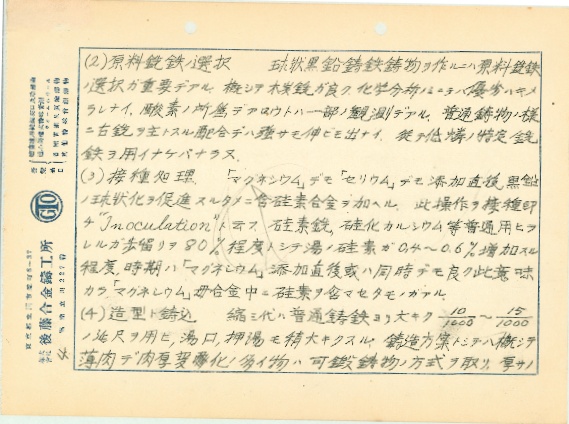 (2) 原料銑鉄ノ選択 球状黒鉛鋳鉄鋳物ヲ作ルニハ原料銑鉄
ノ選択ガ重要デアル. 概シテ木炭銑ガ良ク 化学分析ルニテハ優劣ハキメ
ラレナイ, 酸素ノ所為デアロウトハ一部ノ観測デアル. 普通鋳物ノ様
ニ古銑ヲ主トスル配合デハ強サモ伸ビモ出ナイ. 従テ低燐ノ特定銑
鉄ヲ用イナケバナラヌ.
(3) 接種処理. 「マグネシウム」デモ「セリウム」デモ添加直後, 黒鉛
ノ球状化ヲ促進スルタメニ含硅素合金ヲ加ヘル. 此操作ヲ接種即
チ "Inoculation" ト云フ. 硅素鉄, 硅化カルシウム等普通用ヒラ
レルガ歩留リヲ 80% 程度トシテ湯ノ硅素ガ 0.4〜0.6% 増加スル
程度, 時期ハ「マグネシウム」添加直後或ハ同時デモ良ク此意味
カラ「マグネシウム」母合金中ニ硅素ヲ含マセタモノガアル.
(4) 造型ト鋳込 縮ミ代ハ普通鋳鉄ヨリ大キク 10/1000 〜 15/1000
ノ延尺ヲ用ヒ, 湯口, 押湯モ稍大キクスル. 鋳造方案トシテハ概シテ
薄肉デ肉厚変化ノ多イ物ハ 可鍛鋳物ノ方式ヲ取リ, 厚サノ
GTO
後藤合金鋳工所